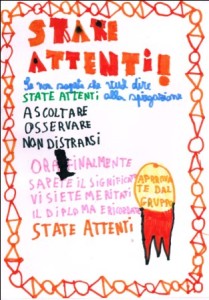 STARE
ATTENTI!!
Se non sapete che vuol dire
STATE ATTENTI alla spiegazione
ASCOLTARE
OSSERVARE
NON DISTRARSI
ORA FINALMENTE
SAPETE IL SIGNIFICATO
VI SIETE MERITATI
IL DIPLOMA E RICORDATE
STATE ATTENTI
APPROVA
TE DAL
GRUPPO